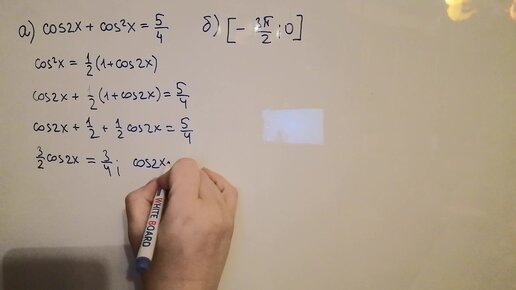 а) cos2x + cos²x = 5/4   б) [- 3π/2 ; 0]
cos²x = 1/2 (1+cos2x)
cos2x + 1/2 (1+cos2x) = 5/4
cos2x + 1/2 + 1/2 cos2x = 5/4
3/2 cos2x = 3/4 ; cos2x
WHITE BOARD